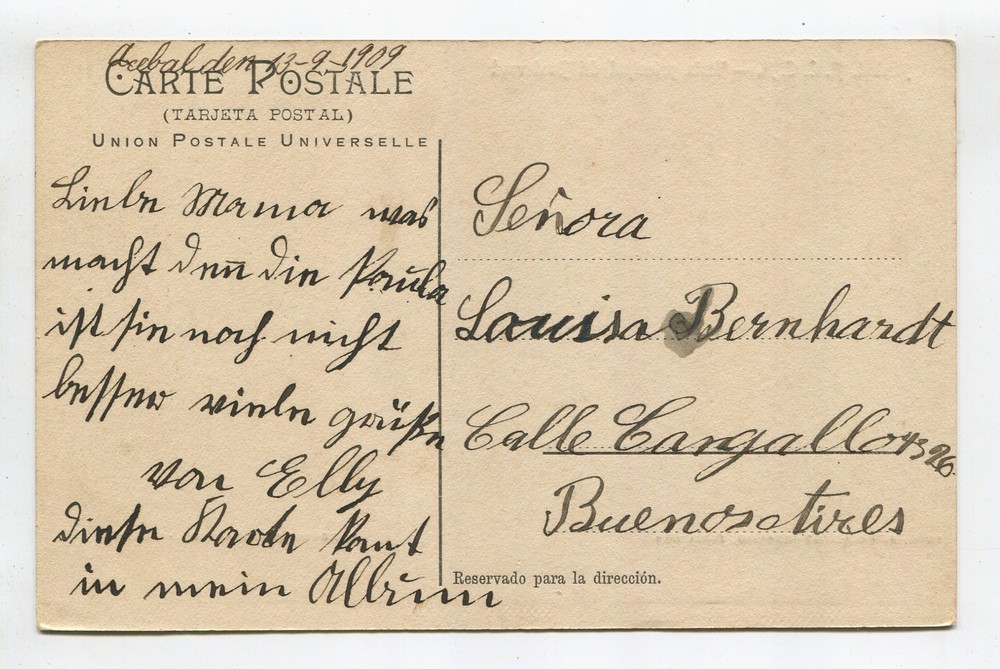 Acebal den 13-9-1909
CARTE POSTALE
(TARJETA POSTAL)
UNION POSTALE UNIVERSELLE
Liebe Mama was
macht den̄ die Paula
ist sie noch nicht
besser viele grüße
von Elly
diese Karte kaut
in mein Album
Señora
Louisa Bernhardt
Calle Cangallo 1326
Buenos Aires
Reservado para la dirección.